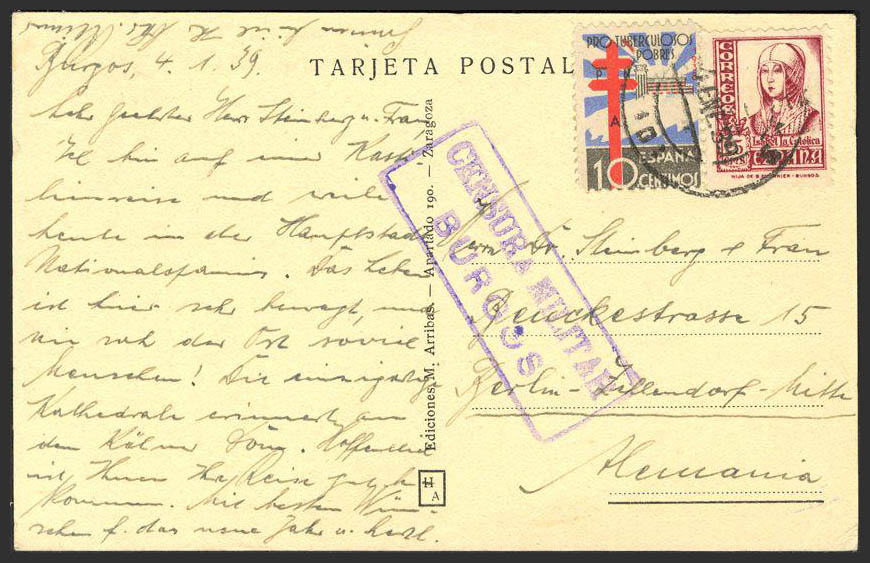 Burgos, 4.1.39.
TARJETA POSTAL
Sehr geehrter Herr Steinberg u. Frau,
Ich bin auf einer
und weile
heute in der Hauptstadt
Nationalspaniens. Das Leben
ist hier sehr bewegt, und
nie sah der Ort soviel
Menschen! Die einzigartige
Kathedrale erinnert an
den Kölner Dom. Hoffentlich
ist Ihnen Ihre Reise gut be-
kommen. Mit besten Wün-
schen f. das neue Jahr u. herzl.
Ediciones M. Arribas. — Apartado 190. — Zaragoza
H
A
CENSURA MILITAR
BURGOS
PRO TUBERCULOSOS
POBRES
ESPAÑA
10 CENTIMOS
CORREOS
Isabel la Católica
ESPAÑA
HIJA DE B. FOURNIER - BURGOS
4 ENE 39
Herrn Dr. Steinberg e Frau
15
Berlin-Zehlendorf-Mitte
Alemania